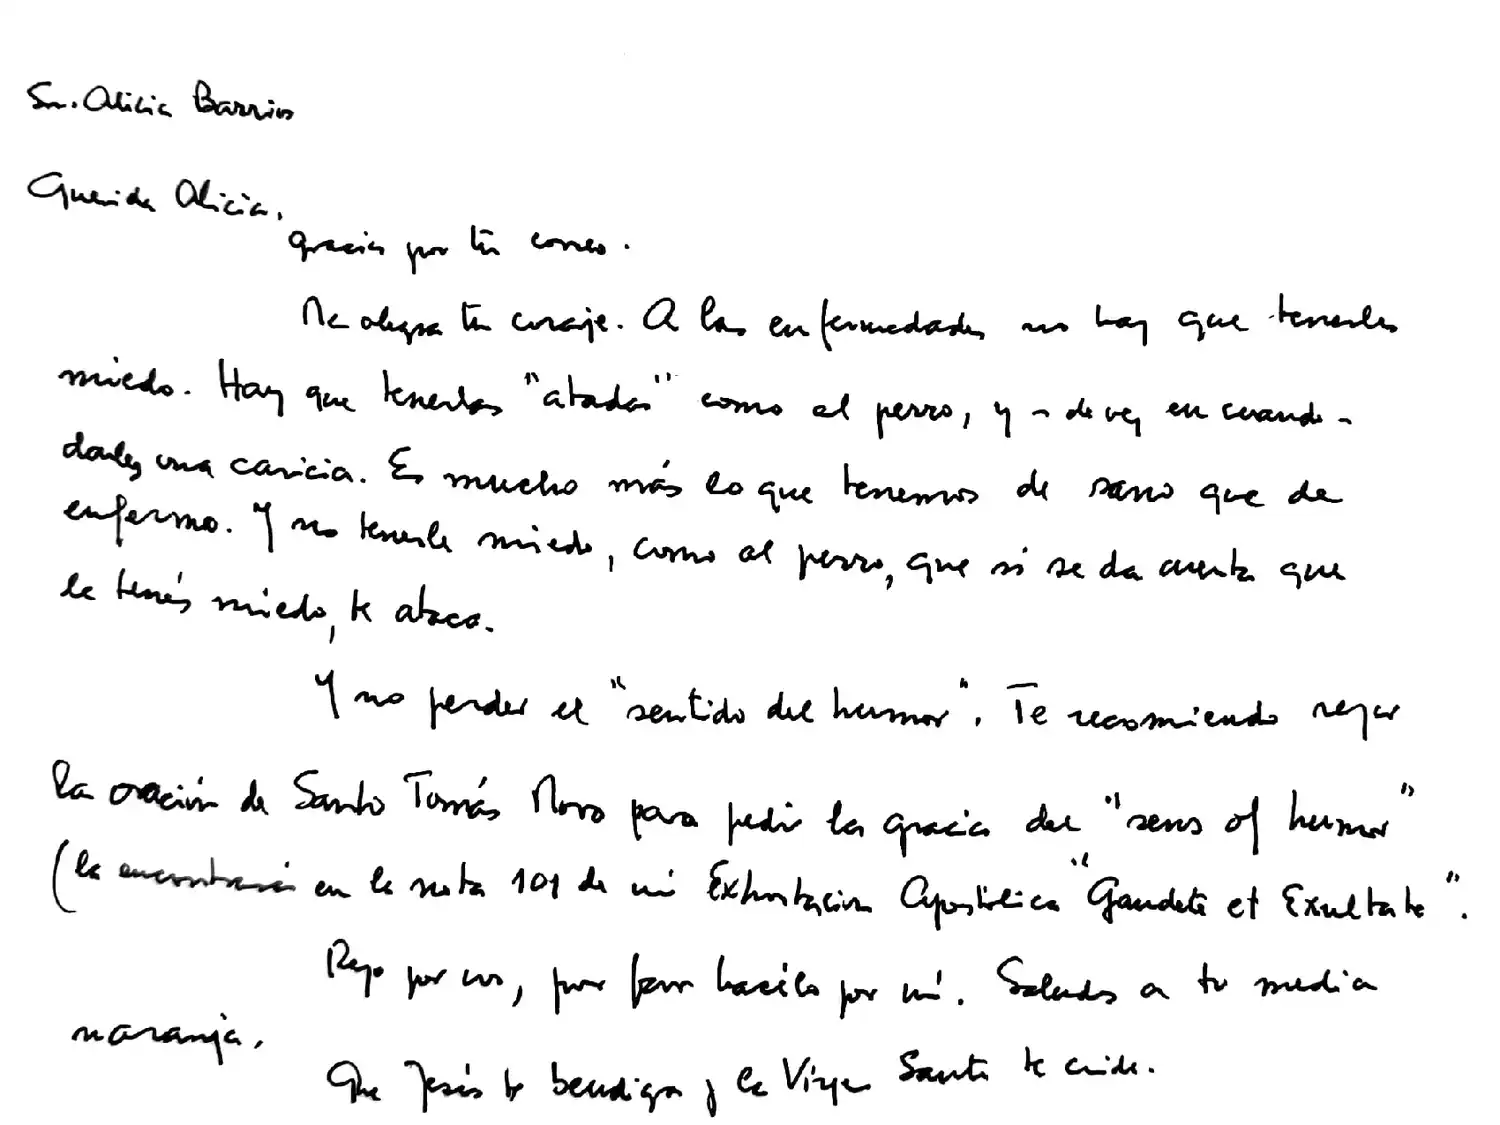 Sra. Alicia Barrios
Querida Alicia,
gracias por tu correo.
Me alegra tu coraje. A las enfermedades no hay que tenerles
miedo. Hay que tenerlas "atadas" como al perro, y - de vez en cuando -
darles una caricia. Es mucho más lo que tenemos de sano que de
enfermo. Y no tenerle miedo, como al perro, que si se da cuenta que
le tenés miedo, te ataca.
Y no perder el "sentido del humor". Te recomiendo rezar
la oración de Santo Tomás Moro para pedir la gracia del "sens of humor"
(la encontrarás en la nota 101 de mi Exhortación Apostólica "Gaudete et Exultate".
Rezo por vos, por favor hacélo por mí. Saludos a tu media
naranja.
Que Jesús te bendiga y la Virgen Santa te cuide.